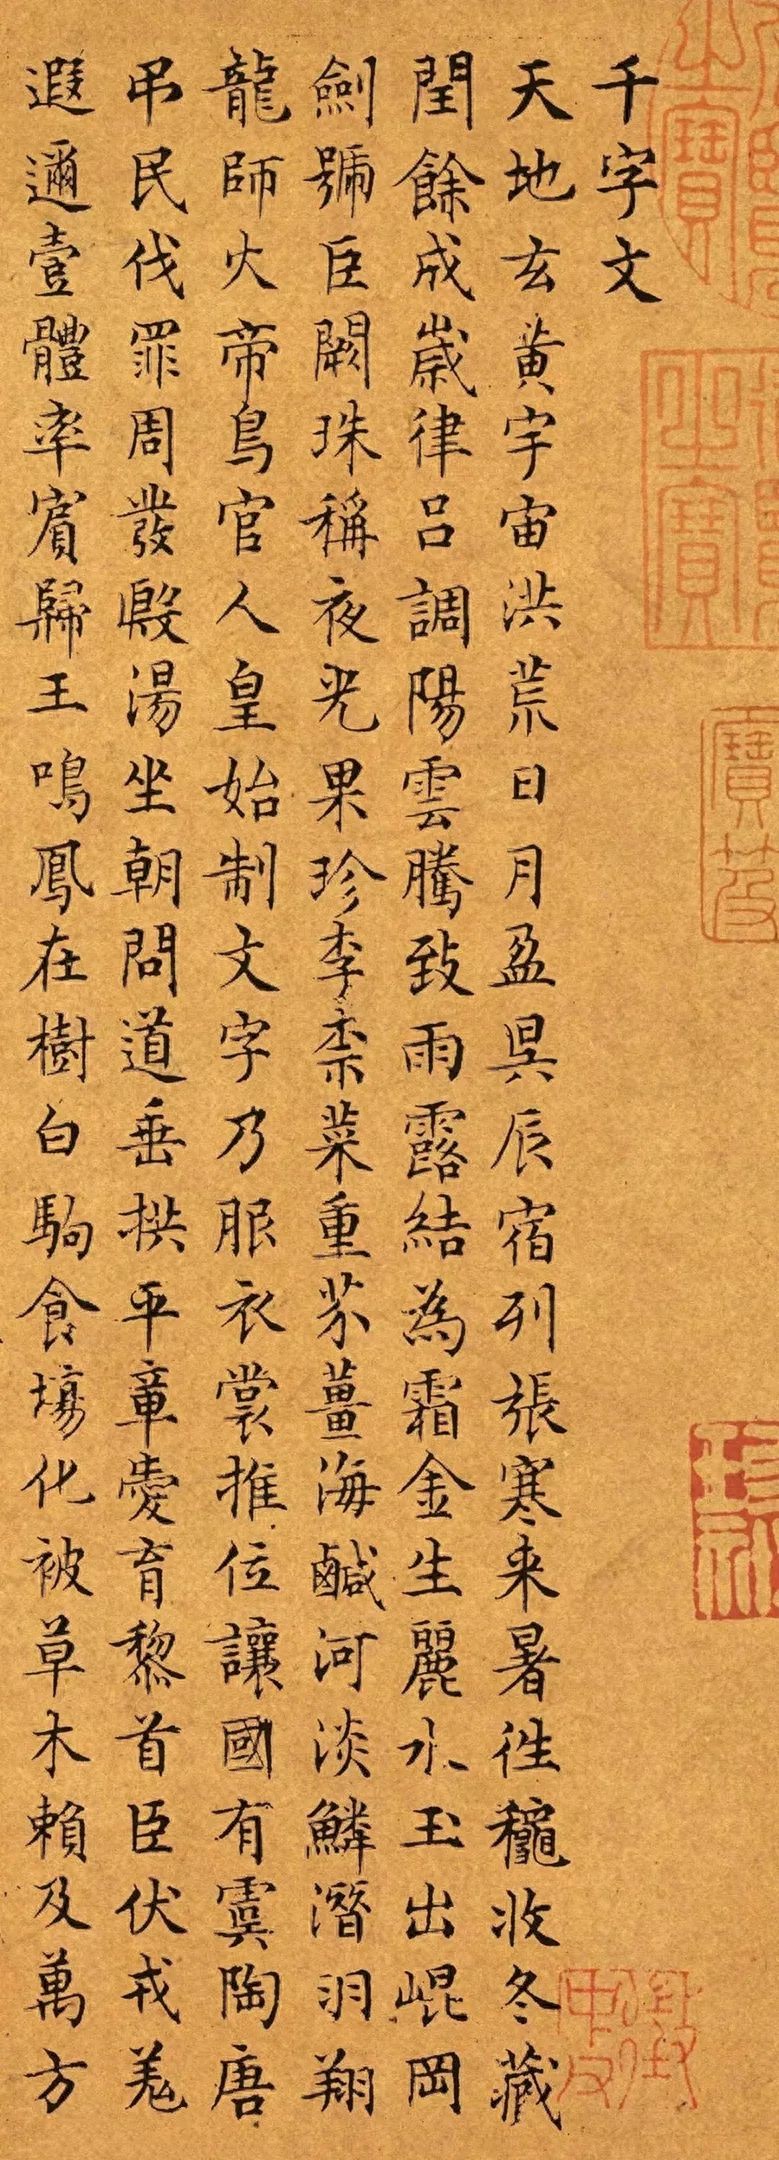 千字文
天地玄黃宇宙洪荒日月盈昃辰宿列張寒来暑徃穐收冬藏
閏餘成歲律呂調陽雲騰致雨露結為霜金生麗水玉出崐岡
劍號巨闕珠稱夜光果珍李柰菜重芥薑海鹹河淡鱗潛羽翔
龍師火帝鳥官人皇始制文字乃服衣裳推位讓國有虞陶唐
弔民伐罪周發殷湯坐朝問道垂拱平章愛育黎首臣伏戎羌
遐邇壹體率賓歸王鳴鳳在樹白駒食場化被草木賴及萬方